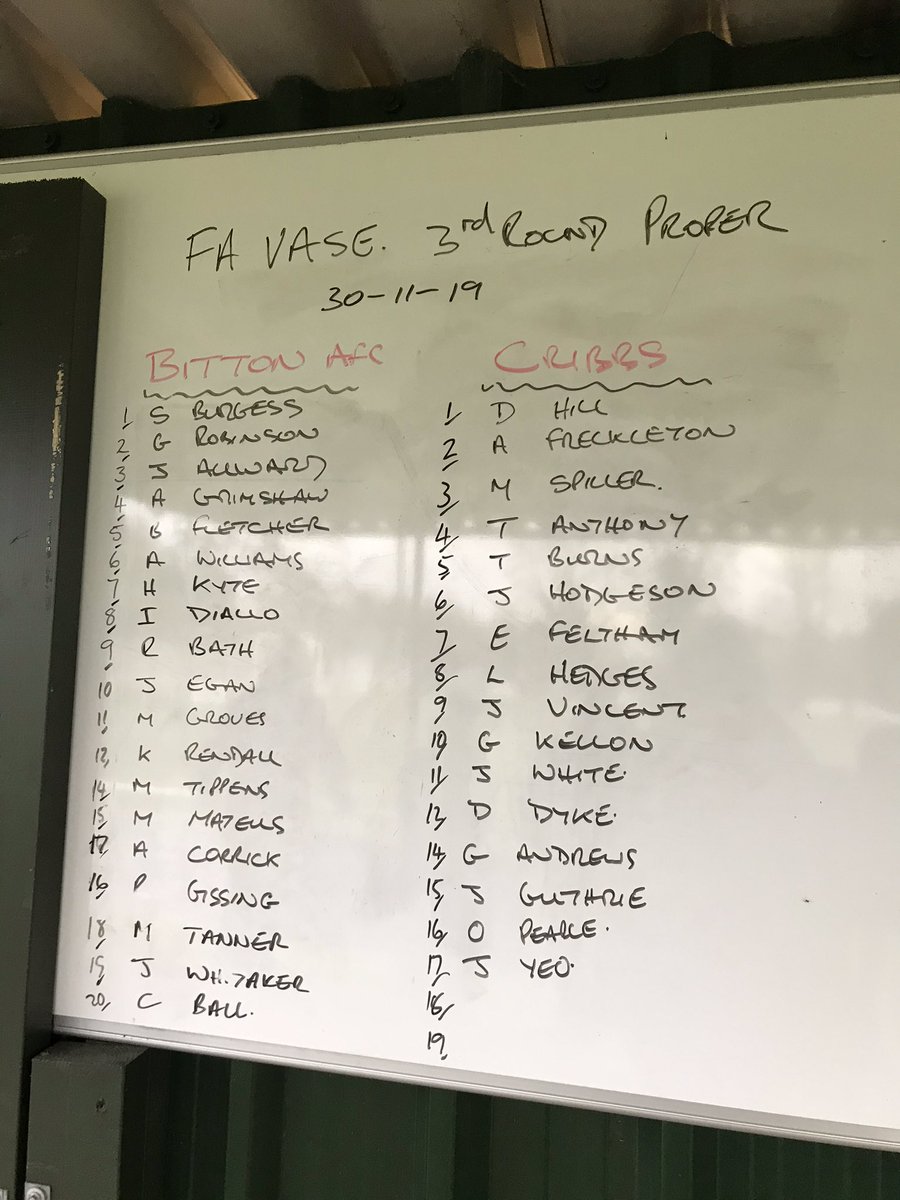 FA VASE. 3rd ROUND PROPER
30-11-19
BITTON AFC
1 S BURGESS
2 G ROBINSON
3 J ALLWARD
4 A GRIMSHAW
5 G FLETCHER
6 A WILLIAMS
7 H KYTE
8 I DIALLO
9 R BATH
10 J EGAN
11 M GROVES
12 K RENDALL
14 M TIPPENS
15 M MATEUS
17 A CORRICK
16 P GISSING
18 M TANNER
19 J WHITAKER
20 C BALL.
CRIBBS
1 D HILL
2 A FRECKLETON
3 M SPILLER.
4 T ANTHONY
5 T BURNS
6 J HODGESON
7 E FELTHAM
8 L HEDGES
9 J VINCENT
10 G KELLON
11 J WHITE.
12 D DYKE.
14 G ANDREWS
15 J GUTHRIE
16 O PEARCE.
17 J YEO.
18
19